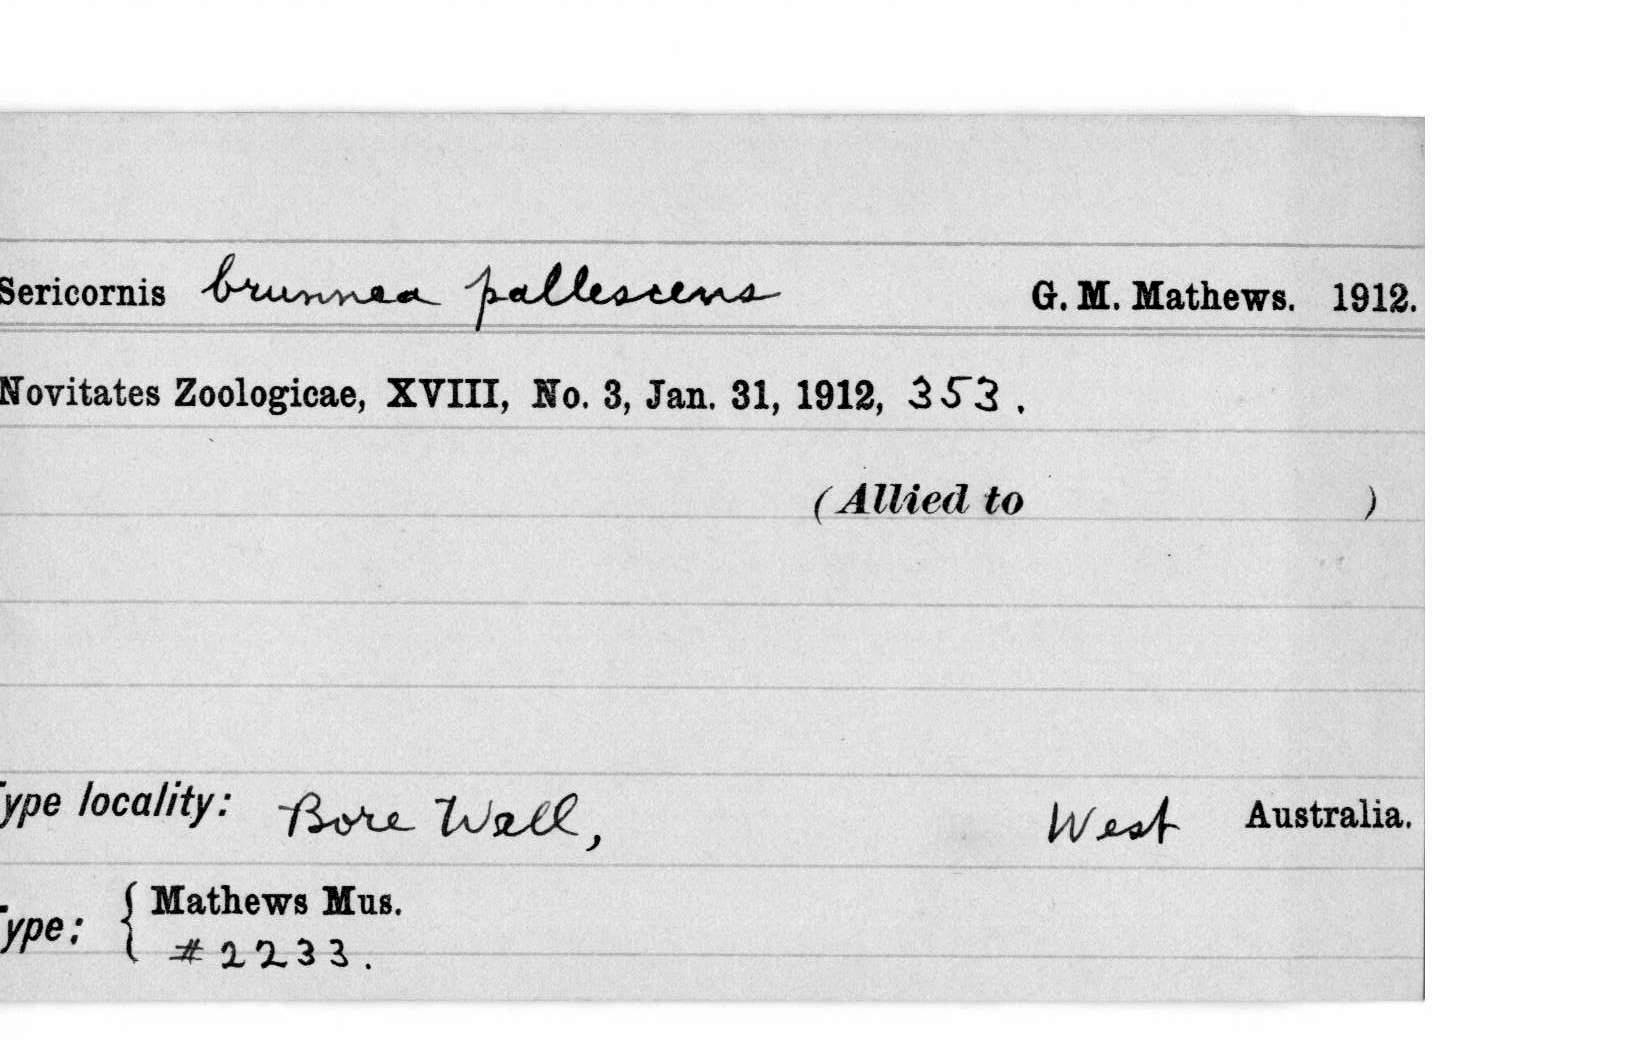 Sericornis brunnea pallescens G. M. Mathews. 1912.
Novitates Zoologicae, XVIII, No. 3, Jan. 31, 1912, 353.
(Allied to )
Type locality: Bore Well, West Australia.
Type: { Mathews Mus.
#2233.